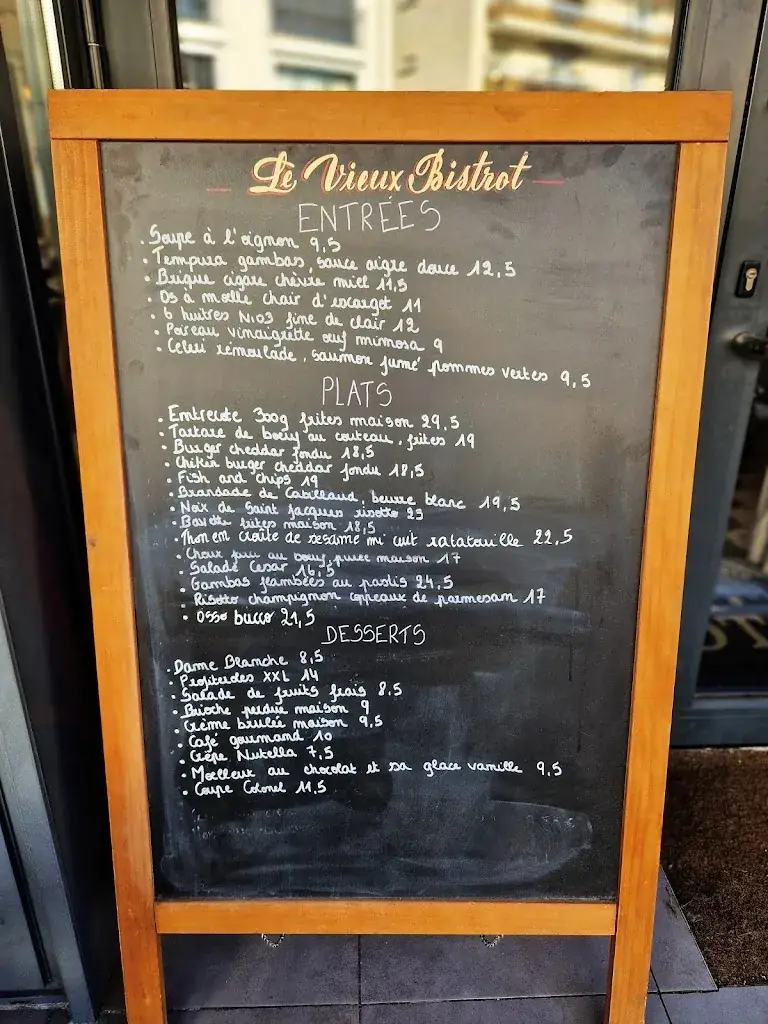 Le Vieux Bistrot
ENTRÉES
. Soupe à l'oignon 9,5
. Tempura gambas, sauce aigre douce 12,5
. Brique cigare chèvre miel 11,5
. Os à moelle chair d'escargot 11
. 6 huitres N.o3 fine de clair 12
. Poireau vinaigrette oeuf mimosa 9
. Celeri rémoulade, saumon fumé pommes vertes 9,5
PLATS
. Entrecote 300g frites maison 29,5
. Tartare de boeuf au couteau, frites 19
. Burger cheddar fondu 18,5
. Chiken burger cheddar fondu 18,5
. Fish and chips 19
. Brandade de Cabillaud, beurre blanc 19,5
. Noix de Saint Jacques risotto 23
. Bavette frites maison 18,5
. Thon en croûte de sesame mi cuit ratatouille 22,5
. Choux farci au boeuf, purée maison 17
. Salade Cesar 16,5
. Gambas flambées au pastis 24,5
. Risotto champignon copeaux de parmesan 17
. Osso bucco 21,5
DESSERTS
. Dame Blanche 8,5
. Profiteroles XXL 14
. Salade de fruits frais 8.5
. Brioche perdue maison 9
. Crème bruleé maison 9,5
. Café gourmand 10
. Crêpe Nutella 7,5
. Moelleux au chocolat et sa glace vanille 9,5
. Coupe Colonel 11,5